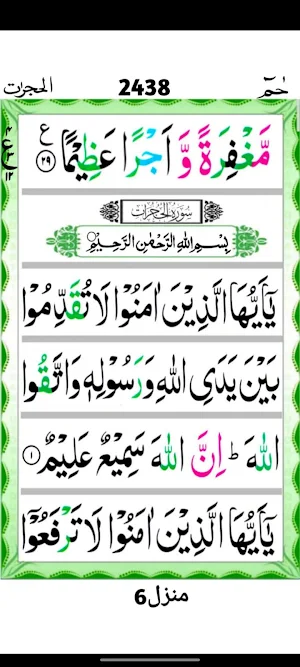 الحجرات 2438 حٰمٓ
مَّغْفِرَةً وَّ اَجْرًا عَظِيْمًا ٢٩ ع
٤ ع ٣ ١٢
سُوْرَةُ الْحُجُرَات
بِسْمِ اللّٰهِ الرَّحْمٰنِ الرَّحِيْمِ
يٰۤاَيُّهَا الَّذِيْنَ اٰمَنُوْا لَا تُقَدِّمُوْا
بَيْنَ يَدَيِ اللّٰهِ وَ رَسُوْلِهٖ وَ اتَّقُوا
اللّٰهَ ؕ اِنَّ اللّٰهَ سَمِيْعٌ عَلِيْمٌ ١
يٰۤاَيُّهَا الَّذِيْنَ اٰمَنُوْا لَا تَرْفَعُوْۤا
منزل 6